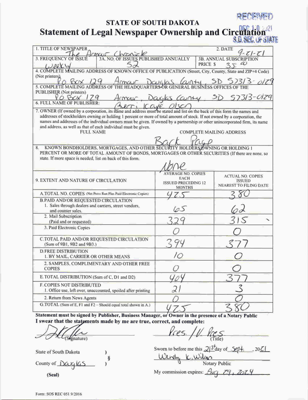 RECEIVED
STATE OF SOUTH DAKOTA
Statement of Legal Newspaper Ownership and Circulation
S.D. SEC. OF STATE
1. TITLE OF NEWSPAPER
2. DATE
The Armour Chronicle
9-21-21
3. FREQUENCY OF ISSUE
3A. NO. OF ISSUES PUBLISHED ANNUALLY
3B. ANNUAL SUBSCRIPTION
Weekly
52
PRICE $
4. COMPLETE MAILING ADDRESS OF KNOWN OFFICE OF PUBLICATION (Street, City, County, State and ZIP+4 Code)
(Not printers)
PO Box 129 Armour Douglas County SD 57313-0129
5. COMPLETE MAILING ADDRESS OF THE HEADQUARTERS OR GENERAL BUSINESS OFFICES OF THE
PUBLISHER (Not printers)
PO Box 129 Armour Douglas County SD 57313-0129
6. FULL NAME OF PUBLISHER:
7. OWNER (If owned by a corporation, its name and address must be stated and list on the back of this form the names and
addresses of stockholders owning or holding 1 percent or more of total amount of stock. If not owned by a corporation, the
names and addresses of the individual owners must be given. If owned by a partnership or other unincorporated firm, its name
and address, as well as that of each individual must be given.
FULL NAME
COMPLETE MAILING ADDRESS
Back Page
8. KNOWN BONDHOLDERS, MORTGAGES, AND OTHER SECURITY HOLDERS OWNING OR HOLDING 1
PERCENT OR MORE OF TOTAL AMOUNT OF BONDS, MORTGAGES, OR OTHER SECURITIES (If there are none, so
state. If more space is needed, list on back of this form.
None
9. EXTENT AND NATURE OF CIRCULATION
AVERAGE NO. COPIES
EACH
ISSUED PRECEDING 12
MONTHS
ACTUAL NO. COPIES
ISSUED
NEAREST TO FILING DATE
A. TOTAL NO. COPIES
425
380
B. PAID AND/OR REQUESTED CIRCULATION
1. Sales through dealers and carriers, street vendors,
and counter sales.
65
62
2. Mail Subscription
(Paid and/or requested)
329
315
3. Paid Electronic Copies
0
0
C. TOTAL PAID AND/OR REQUESTED CIRCULATION
(Sum of 9B1, 9B2 and 9B3.)
394
377
D. FREE DISTRIBUTION
1. BY MAIL, CARRIER OR OTHER MEANS
10
0
2. SAMPLES, COMPLIMENTARY AND OTHER FREE
COPIES
0
0
E. TOTAL DISTRIBUTION (Sum of C, D1 and D2)
404
377
F. COPIES NOT DISTRIBUTED
1. Office use, left over, unaccounted, spoiled after printing
21
3
2. Return from News Agents
0
0
G. TOTAL (Sum of E, F1 and F2 - Should equal total shown in A.)
425
380
Statement must be signed by Publisher, Business Manager, or Owner in the presence of a Notary Public
I swear that the statements made by me are true, correct, and complete:
(Signature)
(Title)
State of South Dakota )
County of Douglas )
(Seal)
Sworn to before me this 21st day of Sept. 2021
Notary Public
My commission expires: Aug 09, 2024
Form: SOS REC 051 9/2016